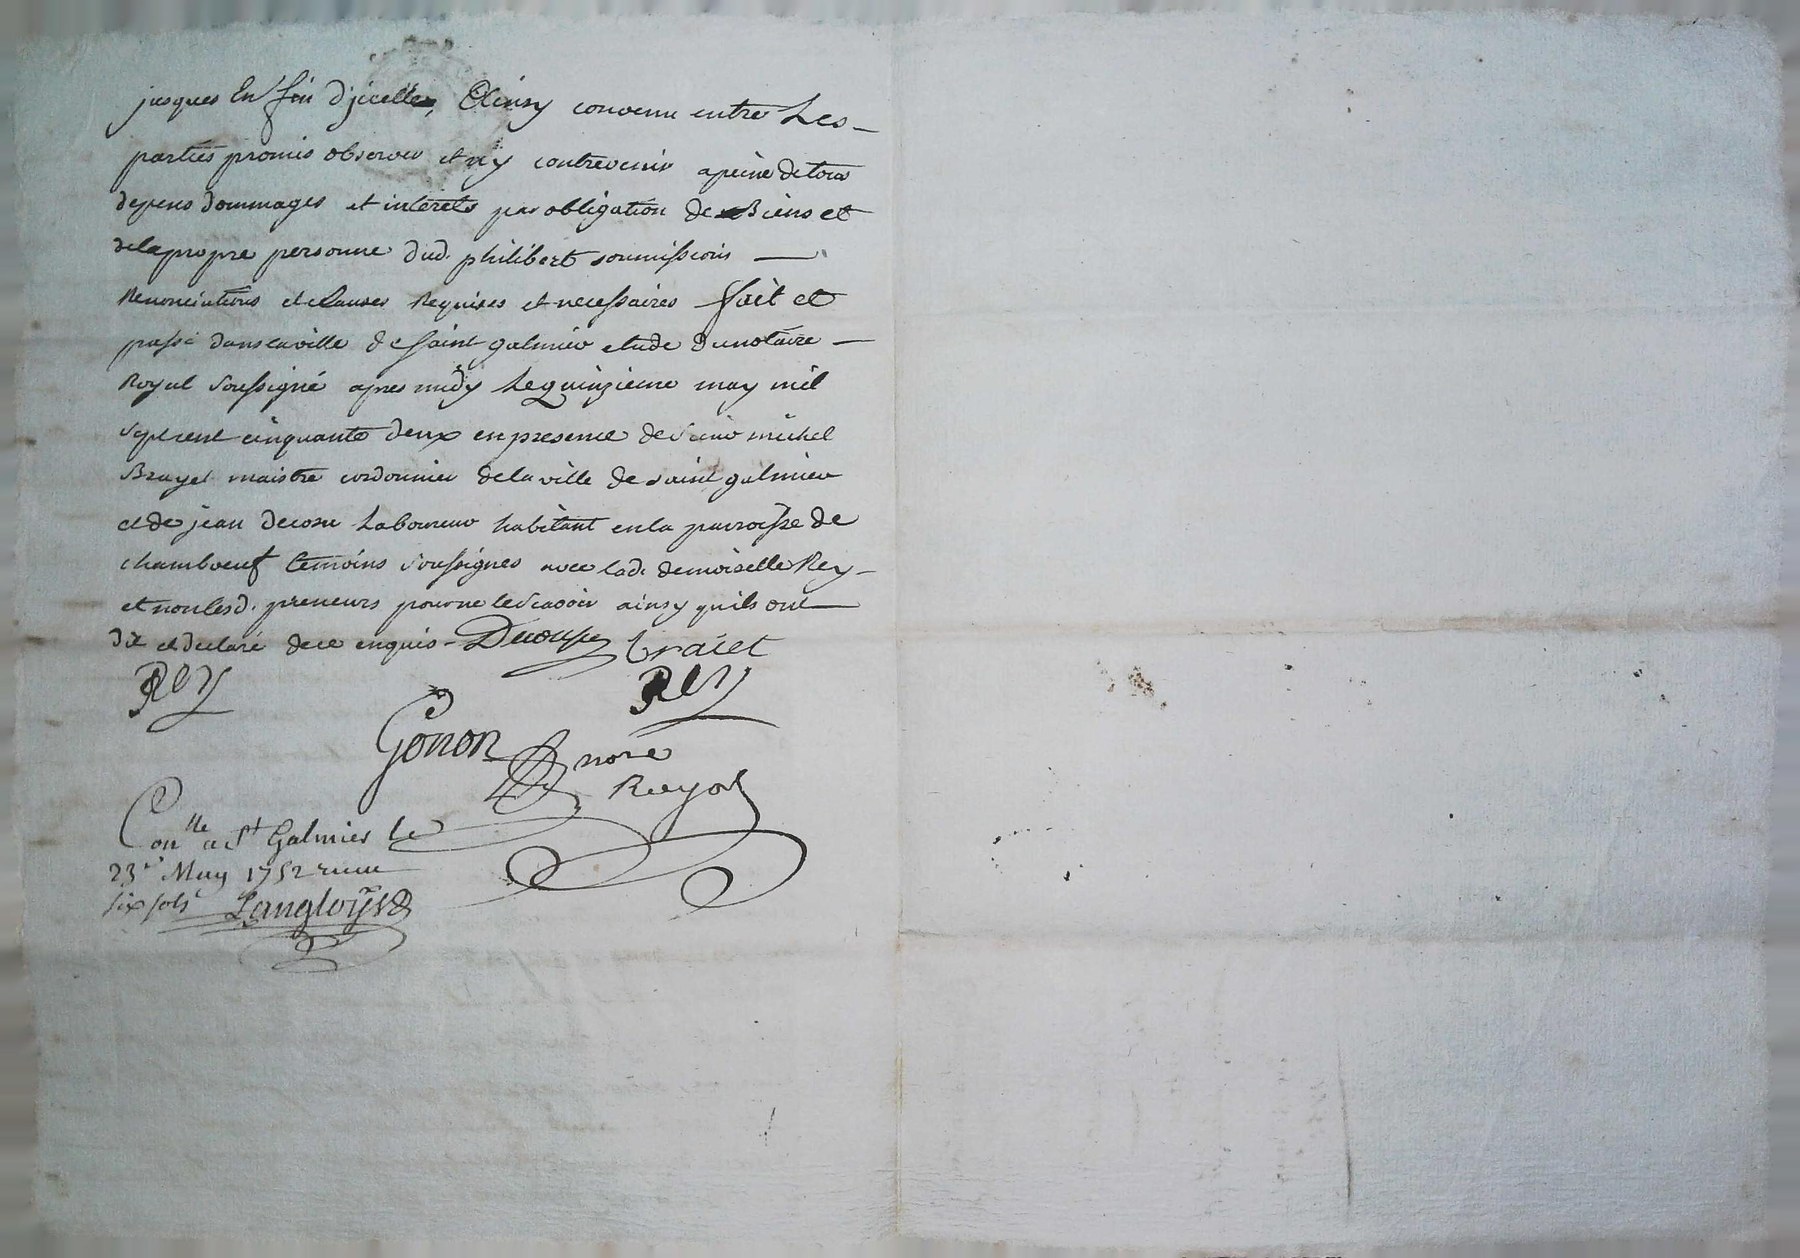 jusques En fin d'jcelle, Etainsy convenu entre Les
parties promis observer et ny contrevenir apeine de tous
depens dommages et interets par obligation de Biens et
dela propre personne dud. philibert soumissions
Renonciations et clauses Requises et necessaires fait et
passé dans la ville de saint galmier etude du notaire
Royal soussigné apres midy Le quinzieme may mil
sept cent cinquante deux en presence de sieur michel
Brayet maistre cordonnier de la ville de saint galmier
et de jean decouse Laboureur habitant en la parroisse de
chamboeuf temoins soussignes avec lad. demoiselle Rey
et non lesd. preneurs pour ne le scavoir ainsy qu'ils ont
dit et declaré de ce enquis Decouse braiet
Rey Rey
Gonon nore
Royal
Conlle a St Galmier le
23e May 1752 recu
six sols Langloÿs